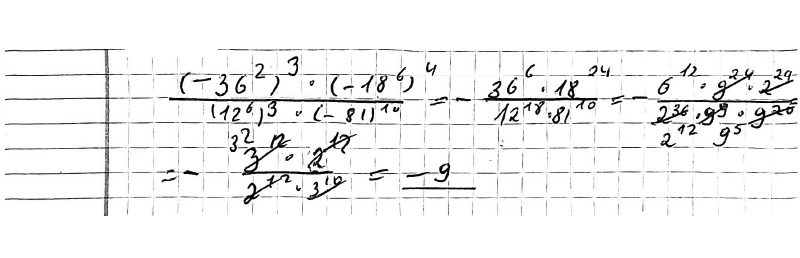 (-36²)³ · (-18⁶)⁴ / (12⁶)³ · (-81)¹⁰ = - 36⁶ · 18²⁴ / 12¹⁸ · 81¹⁰ = - 6¹² · 9²⁴ · 2²⁴ / 2³⁶ · 9⁹ · 9²⁰
2¹² 9⁵
3²
= - 3¹² · 2¹² / 2¹² · 3¹⁰ = -9